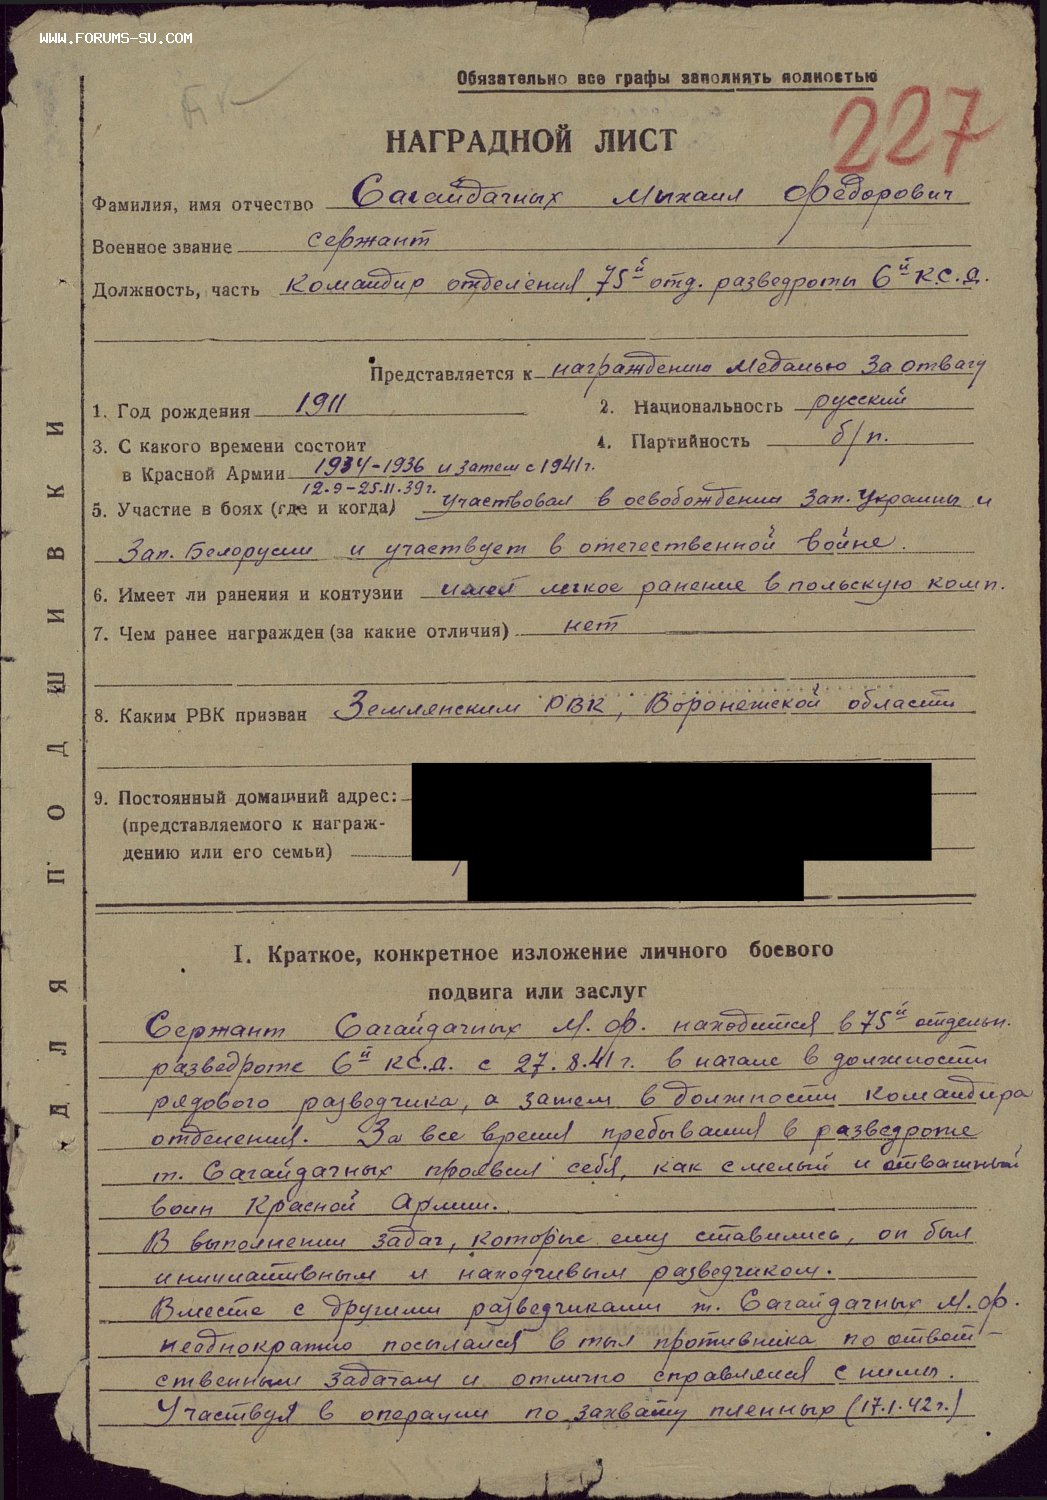 WWW.FORUMS-SU.COM
Обязательно все графы заполнять полностью
227
НАГРАДНОЙ ЛИСТ
Фамилия, имя отчество Сагайдачных Михаил Федорович
Военное звание сержант
Должность, часть командир отделения 75й отд. разведроты 6й к.с.д.
Представляется к награждению Медалью За отвагу
1. Год рождения 1911 2. Национальность русский
3. С какого времени состоит 4. Партийность б/п.
в Красной Армии 1934-1936 и затем с 1941г.
12.9-25.11.39г.
5. Участие в боях (где и когда) участвовал в освобождении Зап. Украины и
Зап. Белорусии и участвует в отечественной войне.
6. Имеет ли ранения и контузии имеет легкое ранение в польскую комп.
7. Чем ранее награжден (за какие отличия) нет
8. Каким РВК призван Землянским РВК, Воронежской области
9. Постоянный домашний адрес:
(представляемого к награж-
дению или его семьи)
I. Краткое, конкретное изложение личного боевого
подвига или заслуг
Сержант Сагайдачных М. Ф. находится в 75й отдельн.
разведроте 6й к.с.д. с 27.8.41г. в начале в должности
рядового разведчика, а затем в должности командира
отделения. За все время пребывания в разведроте
т. Сагайдачных проявил себя, как смелый и отважный
воин Красной Армии.
В выполнении задач, которые ему ставились, он был
инициативным и находчивым разведчиком.
Вместе с другими разведчиками т. Сагайдачных М. Ф.
неоднократно посылался в тыл противника по ответ-
ственным задачам и отлично справлялся с ними.
Участвуя в операции по захвату пленных (17.1.42г.)
ДЛЯ ПОДШИВКИ